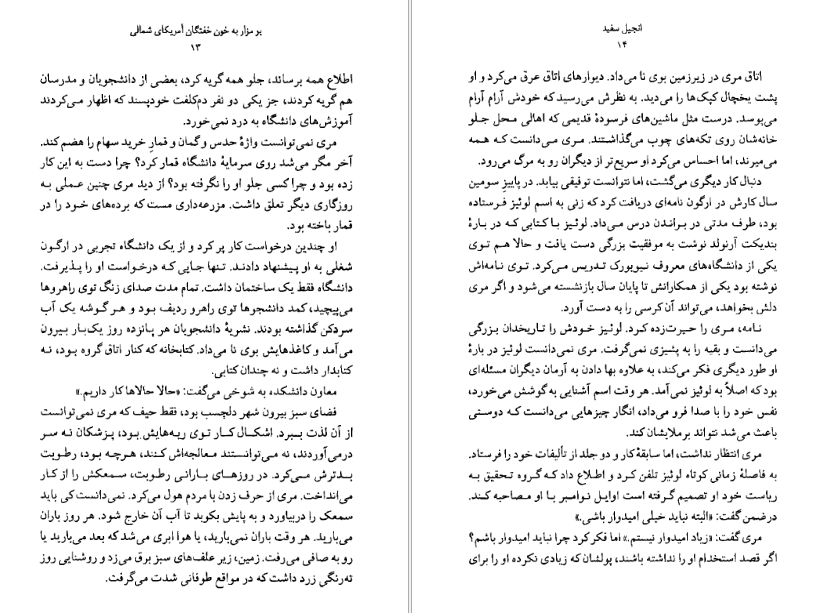 بو مزار به خون خفتگان آمریکای شمالی
۱۳
اطلاع همه برساند، جلو همه گریه کرد، بعضی از دانشجویان و مدرسان
هم گریه کردند، جز یکی دو نفر دم‌کلفت خودپسند که اظهار می‌کردند
آموزش‌های دانشگاه به درد نمی‌خورد.
مری نمی‌توانست واژهٔ حدس و گمان و قمارِ خرید سهام را هضم کند.
آخر مگر می‌شد روی سرمایهٔ دانشگاه قمار کرد؟ چرا دست به این کار
زده بود و چرا کسی جلو او را نگرفته بود؟ از دید مری چنین عملی به
روزگاری دیگر تعلق داشت. مزرعه‌داری مست که برده‌های خود را در
قمار باخته بود.
او چندین درخواست کار پر کرد و از یک دانشگاه تجربی در ارگون
شغلی به او پیشنهاد دادند. تنها جایی که درخواست او را پذیرفت.
دانشگاه فقط یک ساختمان داشت. تمام مدت صدای زنگ توی راهروها
می‌پیچید، کمد دانشجوها توی راهرو ردیف بود و هر گوشه یک آب
سردکن گذاشته بودند. نشریهٔ دانشجویان هر پانزده روز یک‌بار بیرون
می‌آمد و کاغذهایش بوی نا می‌داد. کتابخانه که کنار اتاق گروه بود، نه
کتابدار داشت و نه چندان کتابی.
معاون دانشکده به شوخی می‌گفت: «حالا حالاها کار داریم.»
فضای سبز بیرون شهر دلچسب بود، فقط حیف که مری نمی‌توانست
از آن لذت ببرد. اشکال کار توی ریه‌هایش بود، پزشکان نه سر
درمی‌آوردند، نه می‌توانستند معالجه‌اش کنند، هرچه بود، رطوبت
بدترش می‌کرد. در روزهای بارانی رطوبت، سمعکش را از کار
می‌انداخت. مری از حرف زدن با مردم هول می‌کرد. نمی‌دانست کی باید
سمعک را دربیاورد و به پایش بکوبد تا آب آن خارج شود. هر روز باران
می‌بارید. هر وقت باران نمی‌بارید، یا هوا ابری می‌شد که بعد می‌بارید یا
رو به صافی می‌رفت. زمین، زیر علف‌های سبز برق می‌زد و روشنایی روز
ته‌رنگی زرد داشت که در مواقع طوفانی شدت می‌گرفت.
انجیل سفید
۱۴
اتاق مری در زیرزمین بوی نا می‌داد. دیوارهای اتاق عرق می‌کرد و او
پشت یخچال کپک‌ها را می‌دید. به نظرش می‌رسید که خودش آرام آرام
می‌پوسد. درست مثل ماشین‌های فرسودهٔ قدیمی که اهالی محل جلو
خانه‌شان روی تکه‌های چوب می‌گذاشتند. مری می‌دانست که همه
می‌میرند، اما احساس می‌کرد او سریع‌تر از دیگران رو به مرگ می‌رود.
دنبال کار دیگری می‌گشت، اما نتوانست توفیقی بیابد. در پاییزِ سومین
سال کارش در ارگون نامه‌ای دریافت کرد که زنی به اسم لوئیز فرستاده
بود، طرف مدتی در براندن درس می‌داد. لوئیز با کتابی که در بارهٔ
بندیکت آرنولد نوشت به موفقیت بزرگی دست یافت و حالا هم توی
یکی از دانشگاه‌های معروف نیویورک تدریس می‌کرد. توی نامه‌اش
نوشته بود یکی از همکارانش تا پایان سال بازنشسته می‌شود و اگر مری
دلش بخواهد، می‌تواند آن کرسی را به دست آورد.
نامه، مری را حیرت‌زده کرد. لوئیز خودش را تاریخدان بزرگی
می‌دانست و بقیه را به پشیزی نمی‌گرفت. مری نمی‌دانست لوئیز در بارهٔ
او طور دیگری فکر می‌کند، به علاوه بها دادن به آرمان دیگران مسئله‌ای
بود که اصلاً به لوئیز نمی‌آمد. هر وقت اسم آشنایی به گوشش می‌خورد،
نفس خود را با صدا فرو می‌داد، انگار چیزهایی می‌دانست که دوستی
باعث می‌شد نتواند برملایشان کند.
مری انتظار نداشت، اما سابقهٔ کار و دو جلد از تألیفات خود را فرستاد.
به فاصلهٔ زمانی کوتاه لوئیز تلفن کرد و اطلاع داد که گروه تحقیق به
ریاست خود او تصمیم گرفته است اوایل نوامبر با او مصاحبه کنند.
درضمن گفت: «البته نباید خیلی امیدوار باشی.»
مری گفت: «زیاد امیدوار نیستم.» اما فکر کرد چرا نباید امیدوار باشم؟
اگر قصد استخدام او را نداشته باشند، پولشان که زیادی نکرده او را برای